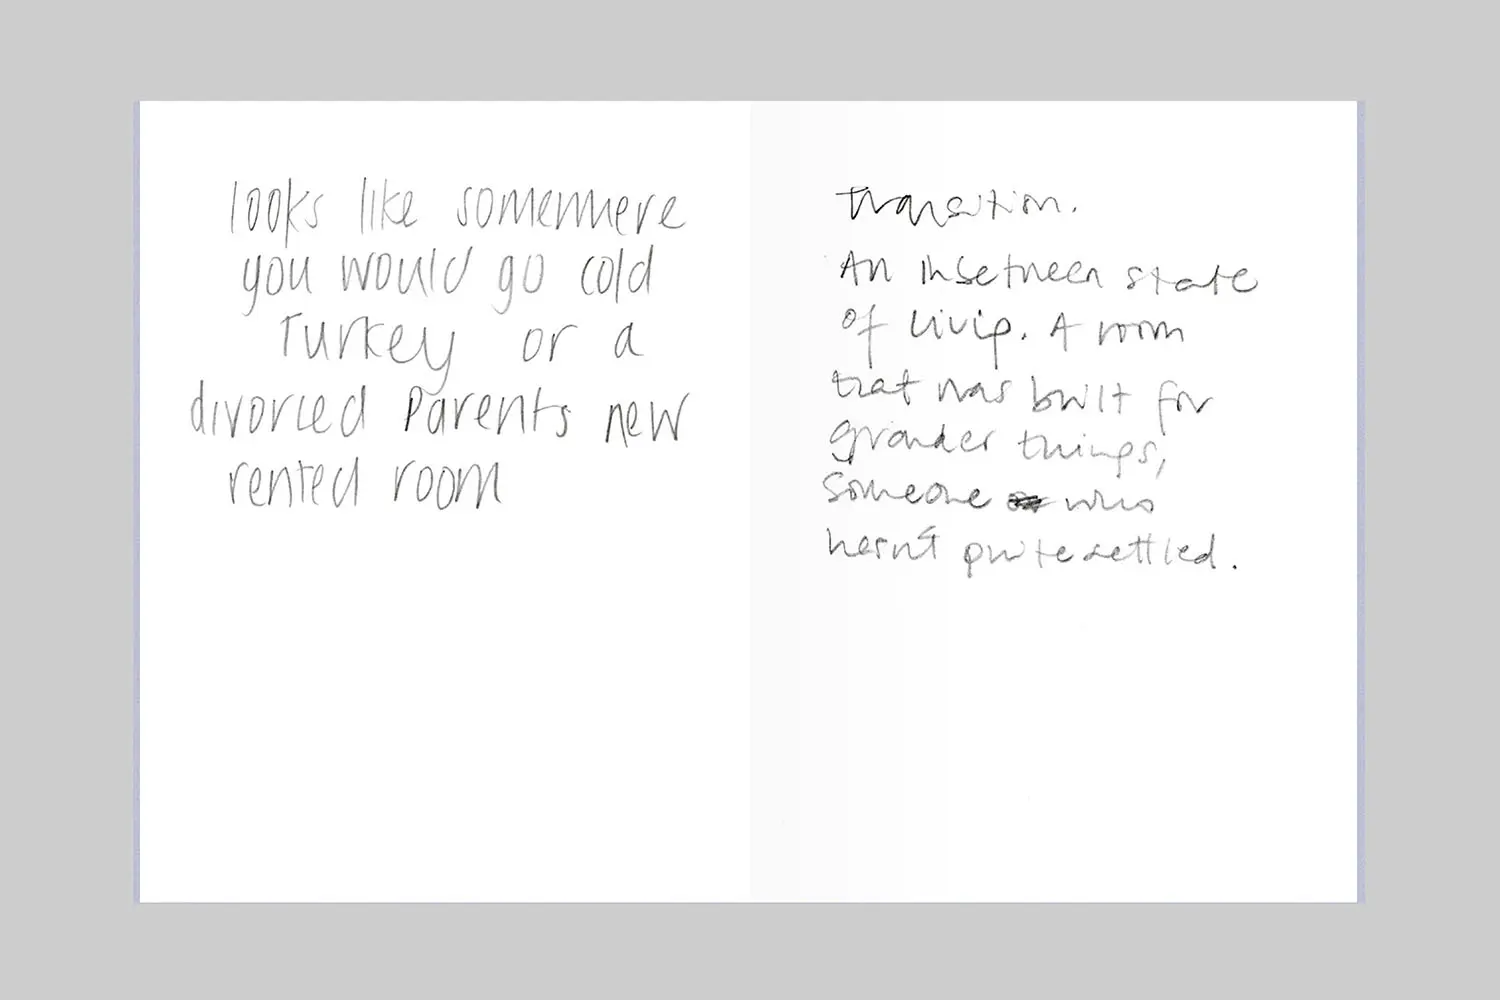 looks like somewhere
you would go cold
Turkey or a
divorced Parents new
rented room
transition.
An inbetween state
of living. A room
that was built for
grander things,
someone who
hasn't quite settled.